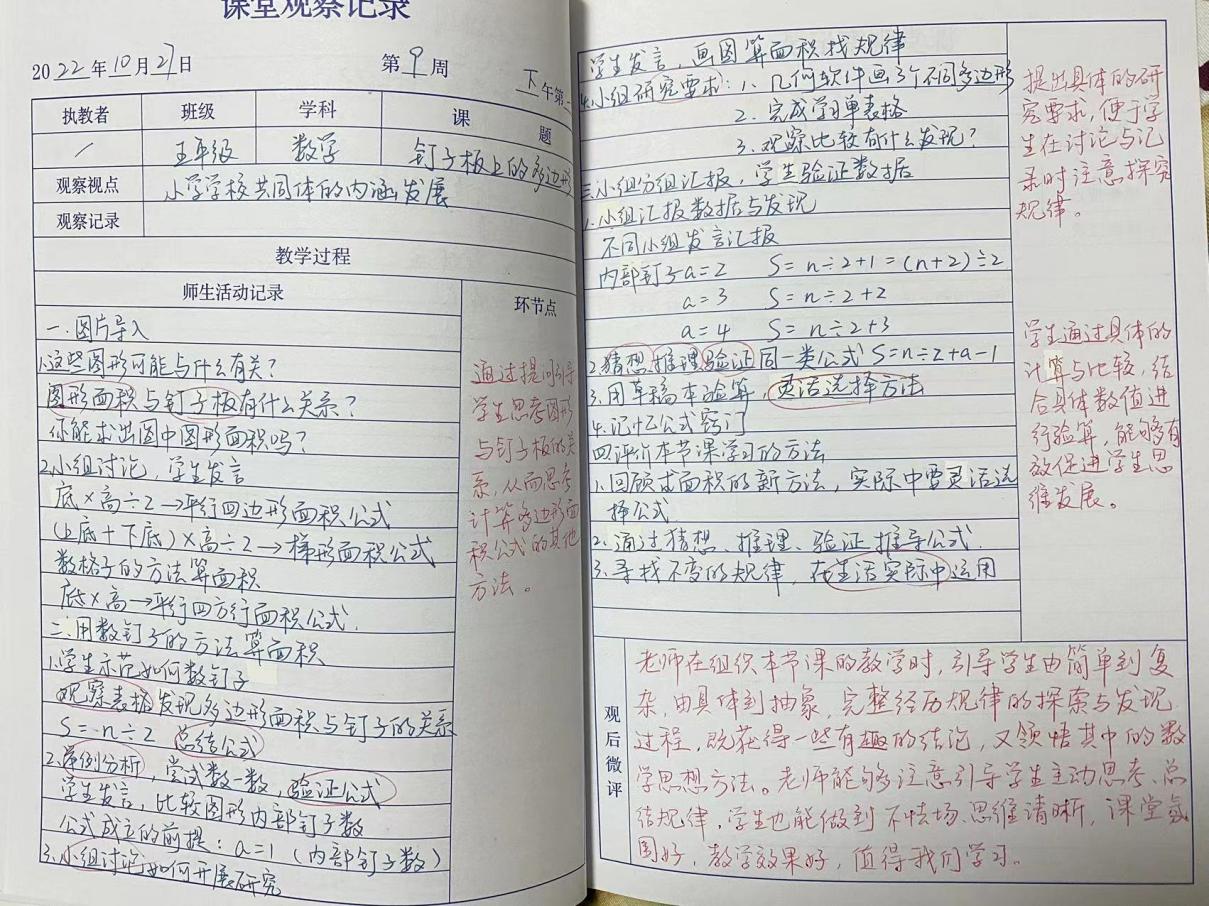 课堂观察记录
2022年10月27日 第9周 下午第
执教者 班级 学科 课题
/ 五年级 数学 钉子板上的多边形
观察视点 小学学校共同体的内涵发展
观察记录
教学过程
师生活动记录 环节点
一.图片导入
1.这些图形可能与什么有关?
图形面积与钉子板有什么关系?
你能求出图中图形面积吗?
2.小组讨论,学生发言
底×高÷2→平行四边形面积公式
(上底+下底)×高÷2→梯形面积公式
数格子的方法算面积
底×高→平行四方行面积公式.
二.用数钉子的方法算面积
1.学生示范如何数钉子
观察表格发现多边形面积与钉子的关系
S=n÷2 总结公式
2.举例分析,尝试数一数,验证公式
学生发言,比较图形内部钉子数
公式成立的前提:a=1(内部钉子数)
3.小组讨论如何开展研究
通过提问引导
学生思考图形
与钉子板的关
系,从而思考
计算多边形面
积公式的其他
方法。
学生发言,画图算面积找规律
4.小组研究要求:1、几何软件画3个不同多边形
2.完成学习单表格
3.观察比较有什么发现?
三.小组分组汇报,学生验证数据
1.小组汇报数据与发现
不同小组发言汇报
内部钉子a=2 S=n÷2+1=(n+2)÷2
a=3 S=n÷2+2
a=4 S=n÷2+3
2.猜想推理验证同一类公式S=n÷2+a-1
3.用草稿本验算,灵活选择方法
4.记忆公式窍门
四评价本节课学习的方法
1.回顾求面积的新方法,实际中要灵活选
择公式
2.通过猜想、推理、验证推导公式
3.寻找不变的规律,在生活实际中运用
提出具体的研
究要求,便于学
生在讨论与记
录时注意探究
规律。
学生通过具体的
计算与比较,结
合具体数值进
行验算,能够有
效促进学生思
维发展。
观后微评
老师在组织本节课的教学时,引导学生由简单到复
杂,由具体到抽象,完整经历规律的探索与发现
过程,既获得一些有趣的结论,又领悟其中的数
学思想方法。老师能够注意引导学生主动思考、总
结规律,学生也能做到不怯场、思维清晰,课堂氛
围好,教学效果好,值得我们学习。